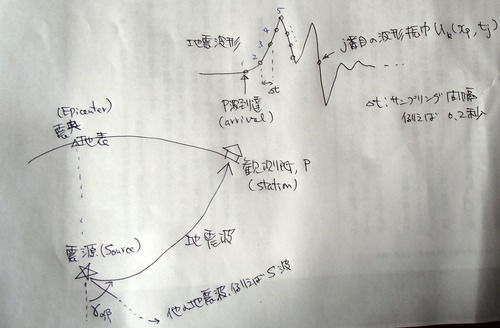 地震波形
1 2 3 4 5
j番目の波形振巾 Uk(xp, tj)
Δt
P波到達
(arrival)
Δt:サンプリング間隔
例えば 0.2秒
(Epicenter)
震央
地表
観測所, P
(station)
震源(Source)
地震波
他の地震波、例えばS波